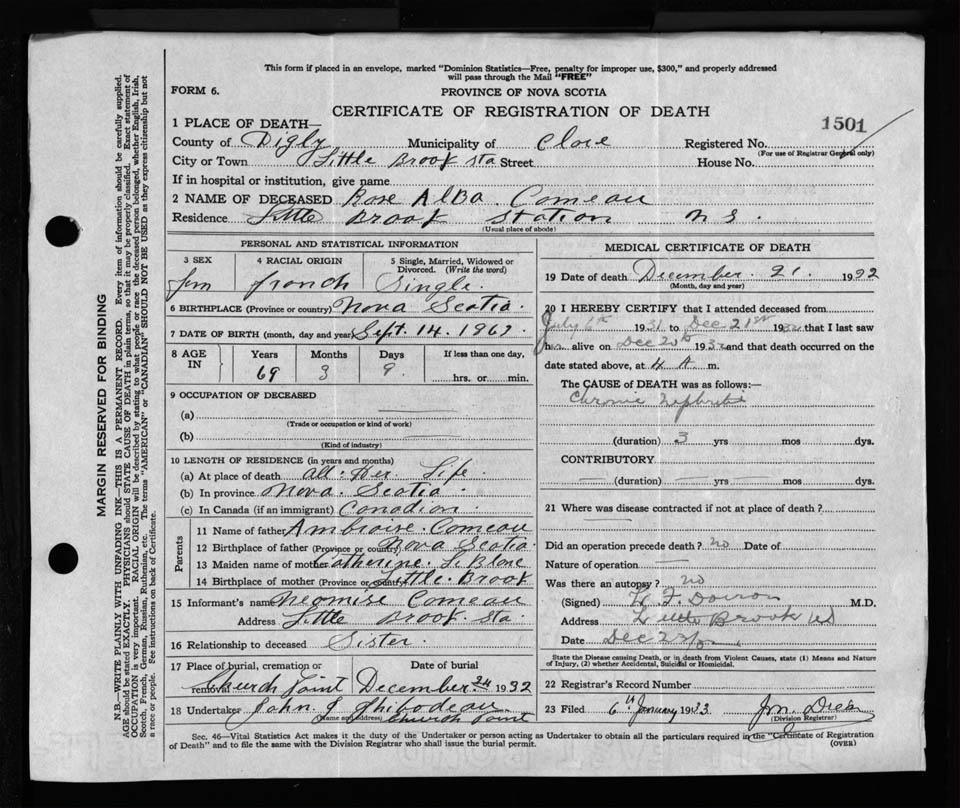 This form if placed in an envelope, marked "Dominion Statistics—Free, penalty for improper use, $300," and properly addressed
will pass through the Mail "FREE"
FORM 6.
PROVINCE OF NOVA SCOTIA
CERTIFICATE OF REGISTRATION OF DEATH
1501
1 PLACE OF DEATH—
County of Digby Municipality of Clare Registered No.
(For use of Registrar General only)
City or Town Little Brook Sta Street House No.
If in hospital or institution, give name
2 NAME OF DECEASED Rose Alba Comeau
Residence Little Brook Station N S.
(Usual place of abode)
PERSONAL AND STATISTICAL INFORMATION
3 SEX 4 RACIAL ORIGIN 5 Single, Married, Widowed or
Divorced. (Write the word)
fem french Single.
6 BIRTHPLACE (Province or country) Nova Scotia.
7 DATE OF BIRTH (month, day and year) Sept. 14. 1863
8 AGE IN Years Months Days If less than one day,
69 3 9 hrs. or min.
9 OCCUPATION OF DECEASED
(a)
(Trade or occupation or kind of work)
(b)
(Kind of industry)
10 LENGTH OF RESIDENCE (in years and months)
(a) At place of death all. Her. Life.
(b) In province Nova. Scotia.
(c) In Canada (if an immigrant) Canadian.
Parents
11 Name of father Ambroise. Comeau
12 Birthplace of father (Province or country) Nova Scotia.
13 Maiden name of mother Catherine. Le Blanc
14 Birthplace of mother (Province or country) Little. Brook
15 Informant's name Neomise Comeau
Address Little Brook. Sta.
16 Relationship to deceased Sister.
17 Place of burial, cremation or removal Date of burial
Church Point December. 24 1932
18 Undertaker John. J. Thibodeau
Name and Address Church Point
MEDICAL CERTIFICATE OF DEATH
19 Date of death December. 21. 1932
(Month, day and year)
20 I HEREBY CERTIFY that I attended deceased from
July 6th 1931 to Dec 21st 1932 that I last saw
her alive on Dec 20th 1932 and that death occurred on the
date stated above, at 4 A. m.
The CAUSE of DEATH was as follows:—
Chronic Nephritis
(duration) 3 yrs mos dys.
CONTRIBUTORY
(duration) yrs mos dys.
21 Where was disease contracted if not at place of death?
Did an operation precede death? no Date of
Nature of operation
Was there an autopsy? no
(Signed) F. Doiron M.D.
Address Little Brook NS
Date Dec
State the Disease causing Death, or in death from Violent Causes, state (1) Means and Nature
of Injury, (2) whether Accidental, Suicidal or Homicidal.
22 Registrar's Record Number
23 Filed 6th January 1933.
(Division Registrar)
Sec. 46—Vital Statistics Act makes it the duty of the Undertaker or person acting as Undertaker to obtain all the particulars required in the "Certificate of Registration
of Death" and to file the same with the Division Registrar who shall issue the burial permit.
(OVER)
MARGIN RESERVED FOR BINDING
N.B.—WRITE PLAINLY WITH UNFADING INK—THIS IS A PERMANENT RECORD. Every item of information should be carefully supplied.
AGE should be stated EXACTLY. PHYSICIANS should STATE CAUSE OF DEATH in plain terms, so that it may be properly classified. Exact statement of
OCCUPATION is very important. RACIAL ORIGIN will be described by stating to what people or race the deceased person belonged, whether English, Irish,
Scotch, French, German, Russian, Ruthenian, etc. The terms "AMERICAN" or "CANADIAN" SHOULD NOT BE USED as they express citizenship but not
a race or people. See instructions on back of Certificate.